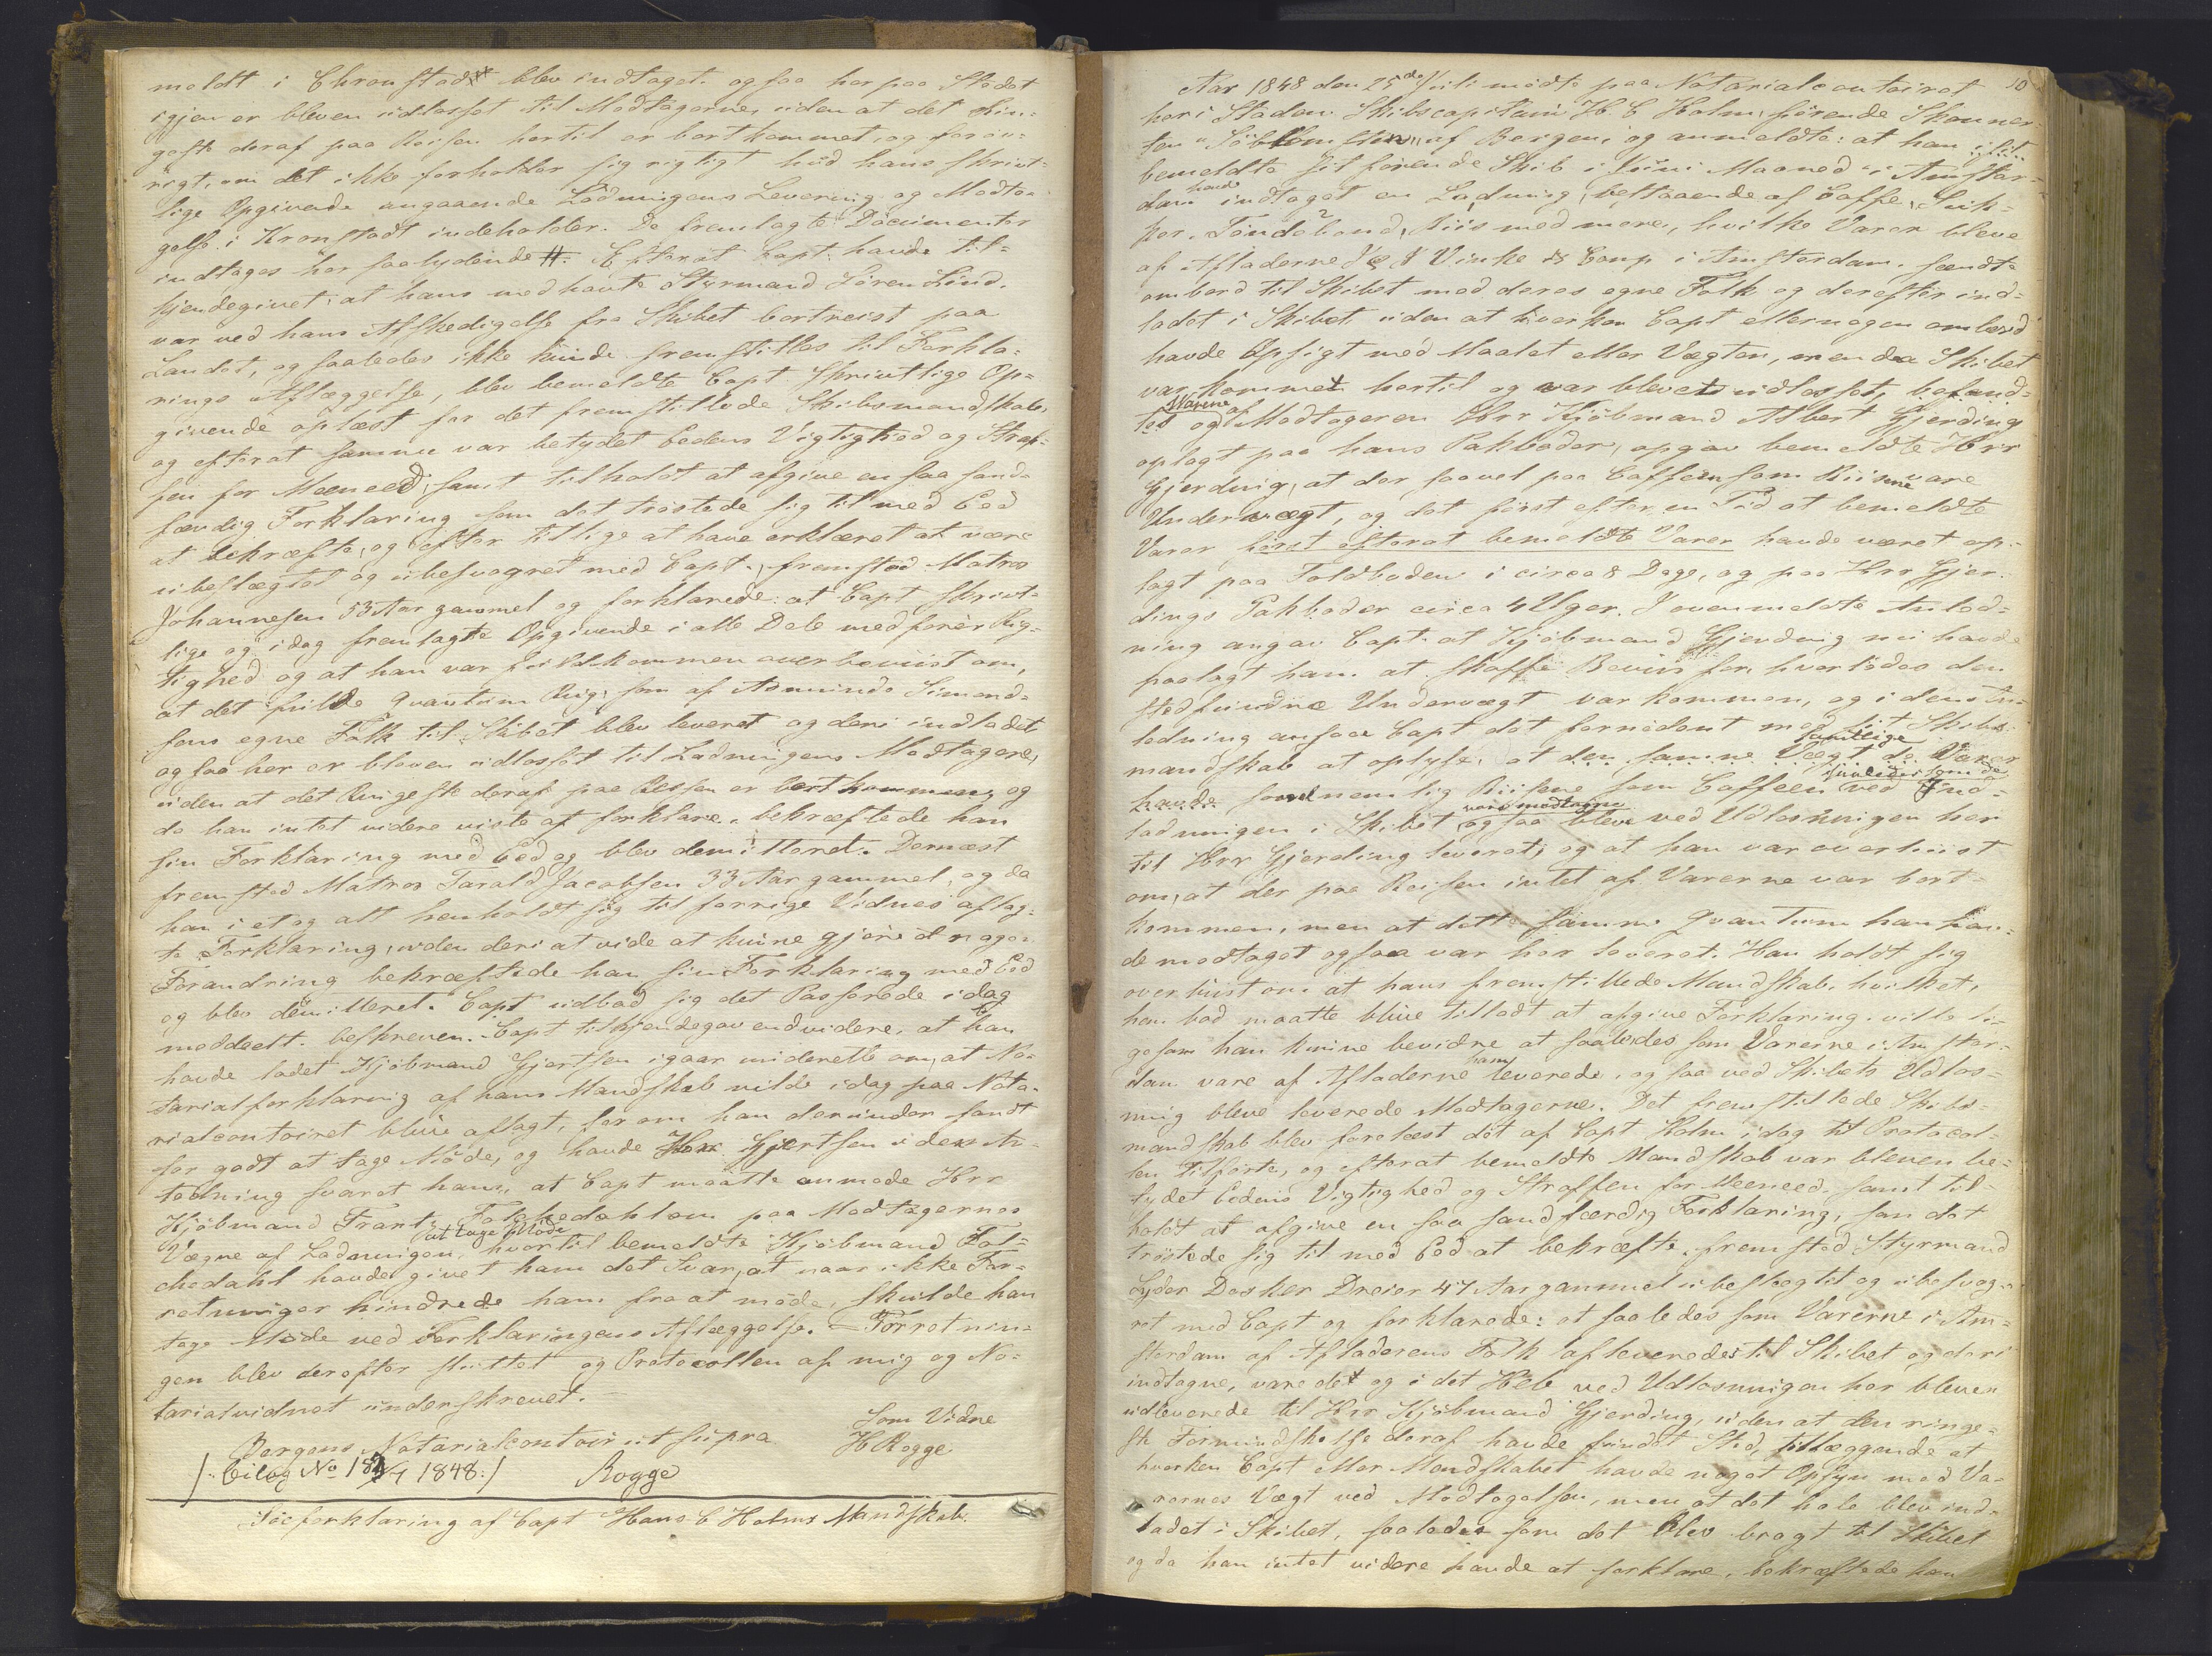 meldt i Chronstadt blev indtaget ogsaa her paa Stedet
igjen er bleven udlosset til Modtagerne, uden at det Rin-
geste deraf paa Reisen hertil er bortkommet, og forøv-
rigt, om det ikke forholder sig rigtigt hvad hans skrivt-
lige Opgivende angaaende Ladningens Levering og Modta-
gelse i Kronstadt indeholder. De fremlagte Documenter
indtages her saalydende #. Efterat Capt: havde til-
kjendegivet: at hans medhavte Styrmand Sören Lind.
var ved hans Afskedigelse fra Skibet bortreist paa
Landet, og saaledes ikke kunde fremstilles til Forkla-
rings Aflæggelse, blev bemeldte Capt. skrivtlige Op-
givende oplæst for det fremstillede Skibsmandskab,
og efterat samme var betydet Eedens Vigtighed og Straf-
fen for Meeneed, samt tilholdt at afgive en saa sand-
færdig Forklaring som det tröstede sig til med Eed
at bekræfte, og efter tillige at have erklæret at være
ubeslægtet og ubesvogret med Capt., fremstod Matros
Johannesen 53 Aar gammel og forklarede: at Capt skrivt-
lige og idag fremlagte Opgivende i alle Dele medfører Rig-
tighed og at han var fuldkommen overbeviist om,
at det fulde Qvantum Rug, som af Asmunds Simond-
sens egne Folk til Skibet blev leveret og deri indladet
ogsaa her er bleven udlosset til Ladningens Modtagere,
uden at det Ringeste deraf paa Reisen er bortkommen, og
da han intet videre viste at forklare, bekræftede han
sin Forklaring med Eed og blev demitteret. Dernæst
fremstod Matros Tarald Jacobsen 33 Aar gammel, og da
han i et og alt henholdt sig til forrige Vidnes aflag-
te Forklaring, uden deri at vide at kunne gjöre nogen
Forandring bekræftede han sin Forklaring med Eed
og blev demitteret. Capt udbad sig det Passerede idag
meddeelt beskreven. Capt tilkjendegav endvidere, at han
havde ladet Kjöbmand Gjertsen igaar underrette om, at No-
tarialforklaring af hans Mandskab vilde idag paa Nota-
rialcontoiret blive aflagt, for om han derunder fandt
for godt at tage Möde, og havde Herr Gjertsen i den An-
ledning svaret ham, at Capt maatte anmode Hrr
Kjöbmand Frantz Falchedahl som paa Modtagernes
Vægne af Ladningen, at tage Möde hvortil bemeldte Kjöbmand Fal-
chedahl havde givet ham det Svar, at naar ikke For-
retninger hindrede ham fra at möde, skulde han
tage Möde ved Forklaringens Aflæggelse. – Forretnin-
gen blev derefter sluttet og Protocollen af mig og No-
tarialvidnet underskrevet. –
Som Vidne
Bergens Notarialcontoir ut supra H Rogge
/: bilag No 18 1848:/ Rogge
Söeforklaring af Capt Hans C Holms Mandskab.
10
Aar 1848 den 25de Juli mödte paa Notarialcontoiret
her i Staden Skibscapitain H. C Holm, förende Skonner-
ten "Söblomsten" af Bergen, og anmeldte: at han i sit
bemeldte sit förende Skib i Juni Maaned i Amster-
dam havde indtaget en Ladning, bestaaende af Caffe, Suk-
ker, Töndebaand, Riis med mere, hvilke Varer bleve
af Afladerne Vinke & Comp i Amsterdam, sendte
ombord til Skibet med deres egne Folk og derefter ind-
ladet i Skibet uden at hverken Capt eller nogen ombord
havde Opsigt med Maalet eller Vægten, men da Skibet
var kommet hertil og var blevet udlosset, befand-
tes Warene og af Modtageren Hrr Kjöbmand Albert Gjerding
oplagt paa hans Pakboder, opgav bemeldte Hrr
Gjerding, at der saavel paa Caffeen som Riisene vare
Undervægt, og det först efter en Tid at bemeldte
Varer först efterat bemeldte Varer havde været op-
lagt paa Toldboden i circa 8 Dage, og paa Hrr Gjer-
dings Pakboder circa 4 Uger. I ovenmeldte Anled-
ning angav Capt. at Kjöbmand Gjerding nu havde
paalagt ham at skaffe Beviis for, hvorledes den
stedfundne Undervægt var kommen, og i dens An-
ledning ansaae Capt det fornödent med sit Skibs-
mandskab at oplyse, at den samme Vægt de samtlige Varer
havde saavel nemlig Riisene som Caffeen saaledes som de ved Ind-
ladningen i Skibet vare modtagne ogsaa bleve ved Udlosningen her
til Hrr Gjerding leveret, og at han var overbeviist
om, at der paa Reisen intet af Varerne var bort-
kommen, men at dette samme Qvantum han hav-
de modtaget ogsaa var her leveret. Han holdt sig
overbiist om at hans fremstillede Mandskab, hvilket,
han bad maatte blive tilladt at afgive Forklaring, vilde li-
gesom han kunne bevidne at saaledes som Varerne i Amster-
dam vare af Afladerne ham leverede, ogsaa ved Skibets Udlos-
ning bleve leverede Modtagerne. Det fremstillede Skibs-
mandskab blev forelæst det af Capt Holm idag til Protocol-
len tilförte, og efterat bemeldte Mandskab var bleven be-
tydet Eedens Vigtighed og Straffen for Meeneed, samt til-
holdt at afgive en saa sandfærdig Forklaring, som det
tröstede sig til med Eed at bekræfte, fremstod Styrmand
Lyder Dosker Dreier 47 Aar gammel ubeslægtet og ubesvog-
ret med Capt og forklarede: at saaledes som Varerne i Am-
sterdam af Afladerens Folk afleveredes til Skibet og deri
indtagne, vare det og i det Hele ved Udlosningen her bleven
udleverede til Hrr Kjöbmand Gjerding, uden at den ringe-
ste Formindskelse deraf havde fundet Sted, tillæggende at
hverken Capt eller Mandskabet havde noget Opsyn med Va-
rernes Vægt ved Modtagelsen, men at det hele blev ind-
ladet i Skibet, saaledes som det blev bragt til Skibet
og da han intet videre havde at forklare, bekræftede han